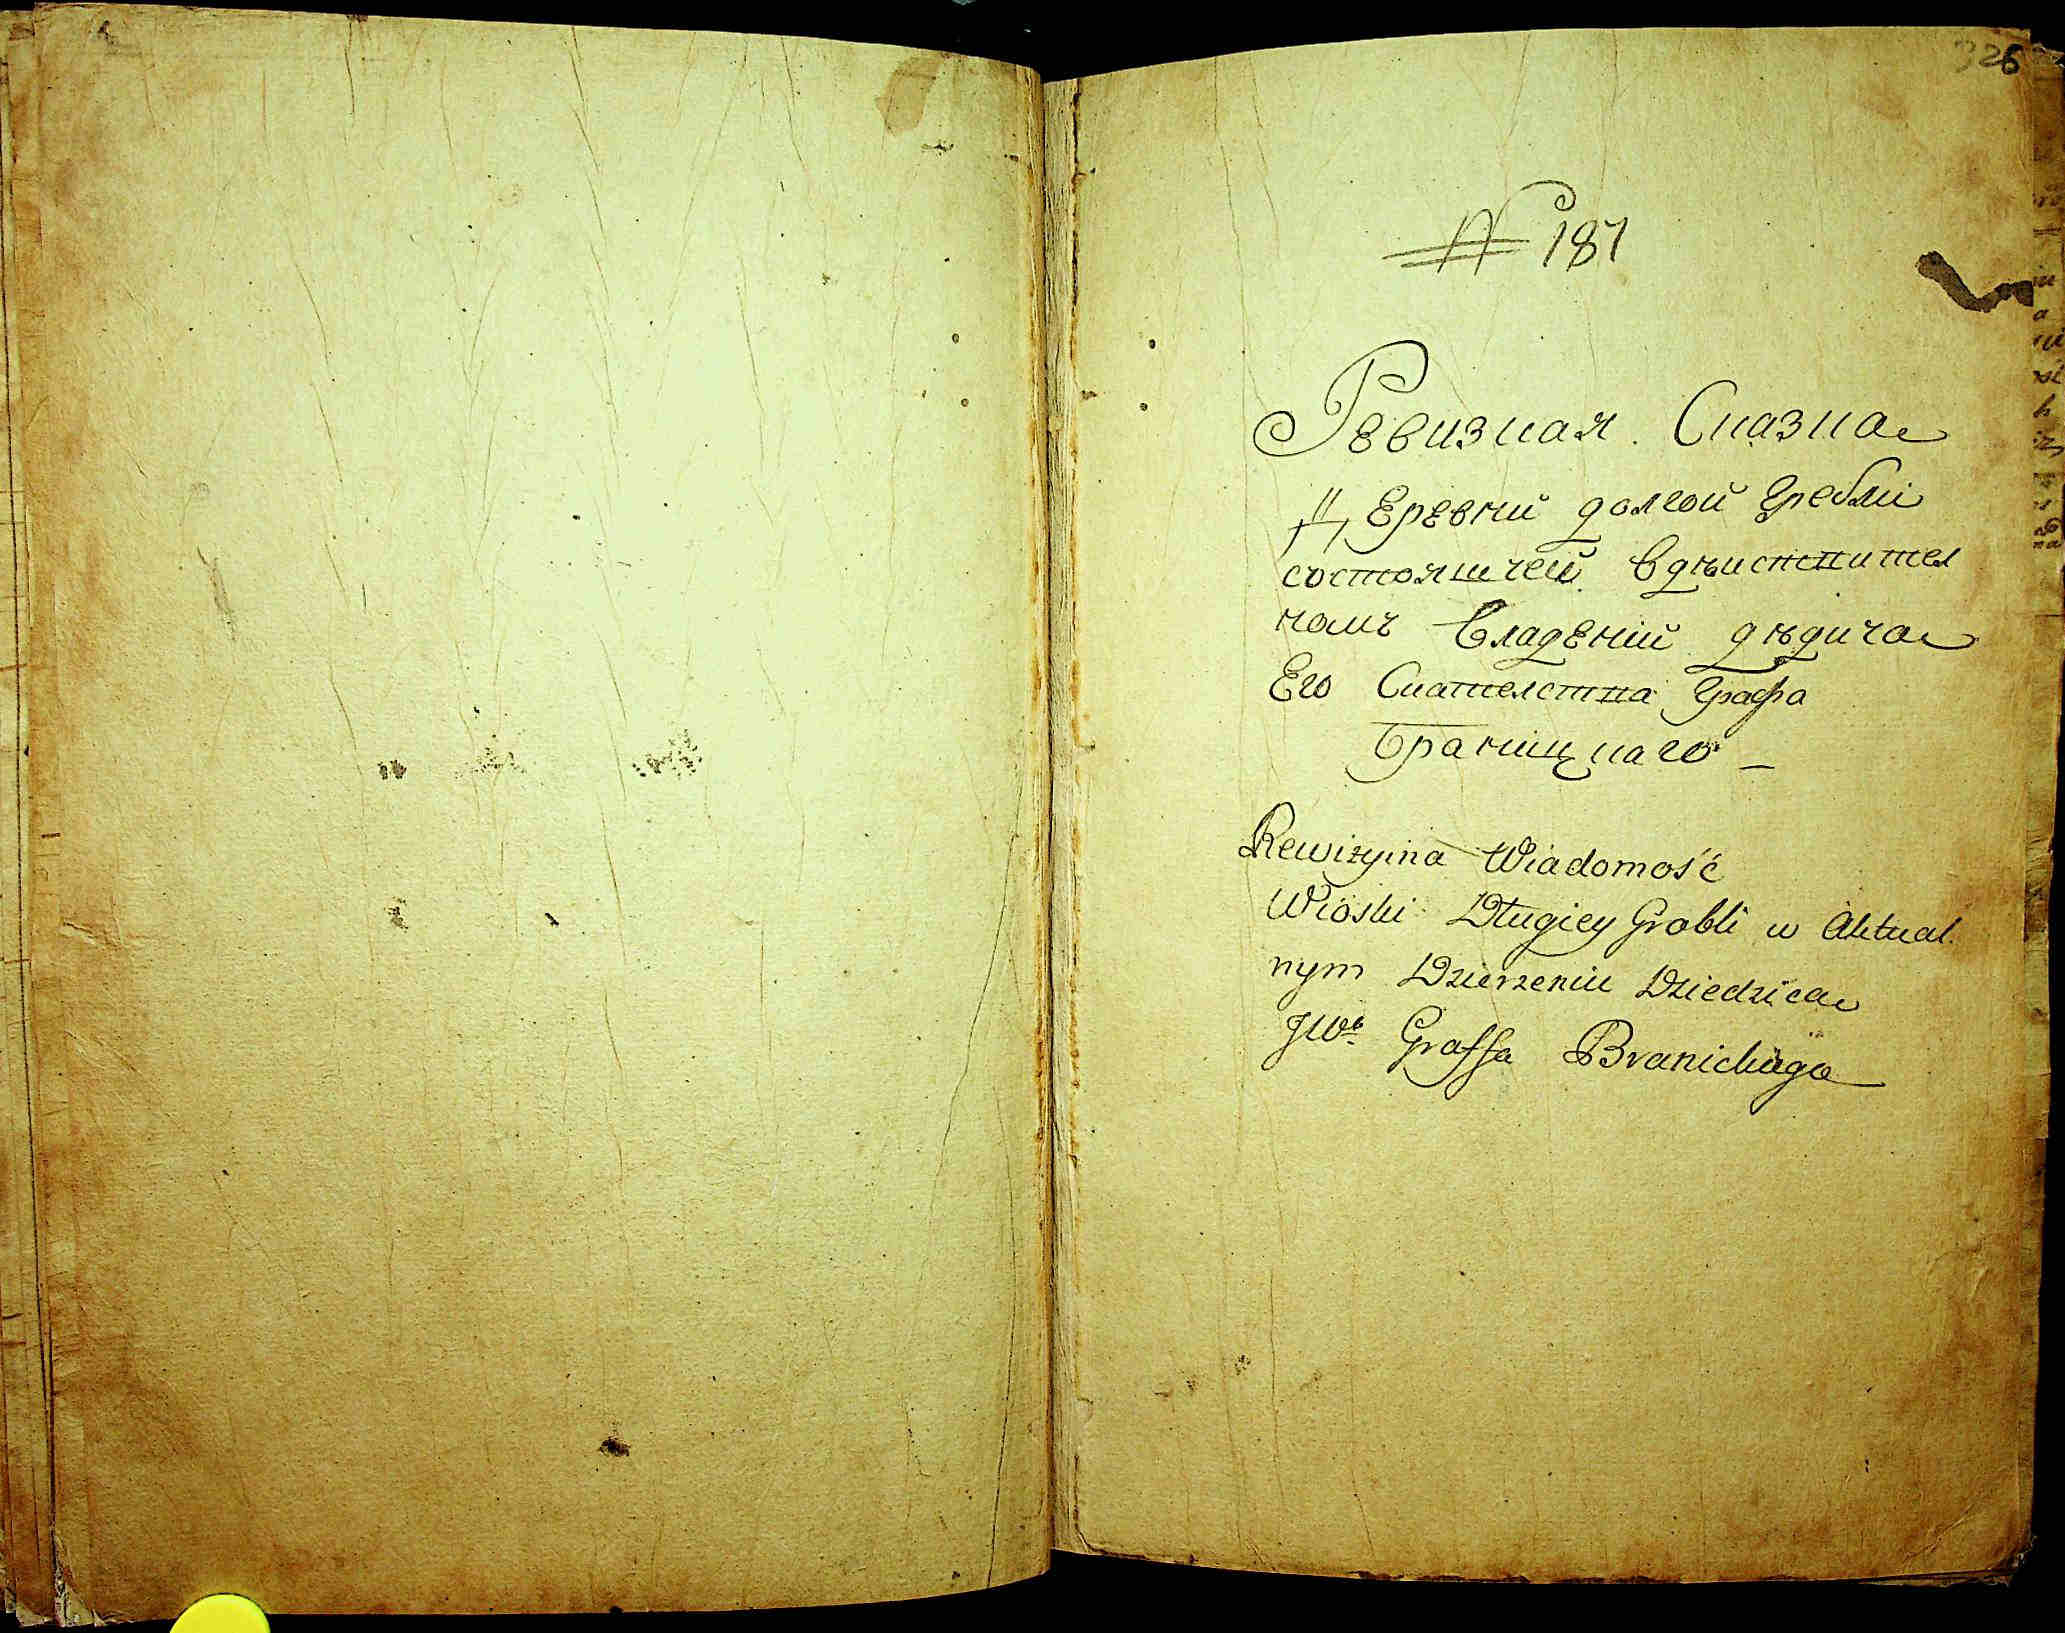 326
№ 187
Ревизкая Сказка
Деревни долгой Гребли
состояшчей вдѣиствител
номъ Владении дѣдича
Его Сиателства Графа
Браницкаго
Rewizyina Wiadomość
Wioski Długiey Grobli w Aktual
nym Dzierzeniu Dziedzica
JWo Graffa Branickiego